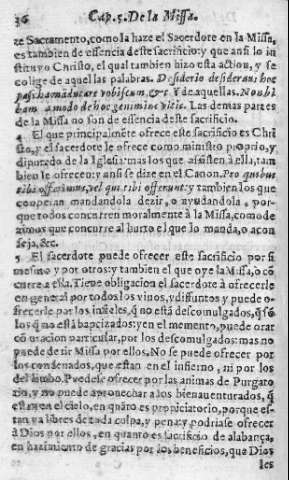 36 Cap. 5. De la Missa.
te Sacramento, como la haze el Sacerdote en la Missa,
es tambien de essencia deste sacrificio: y que ansi lo in
stituyo Christo, el qual tambien hizo esta action, y se
colige de aquellas palabras. Desiderio desideraui hoc
pascha manducare vobiscum, &c. Y de aquellas. Non bi
bam amodo de hoc genimine vitis. Las demas partes
de la Missa no son de essencia deste sacrificio.
4 El que principalmẽte ofrece este sacrificio es Chri
sto, y el sacerdote le ofrece como ministro proprio, y
diputado de la Iglesia: mas los que assisten à ella, tam
bien le ofrecen: y ansi se dize en el Canon. Pro quibus
tibi offerimus, vel qui tibi offerunt: y tambien los que
cooperan mandandola dezir, o ayudandola, por-
que todos concurren moralmente à la Missa, como de
zimos que concurre al hurto el que lo manda, o acon
seja, &c.
5 El sacerdote puede ofrecer este sacrificio por si
mesmo y por otros: y tambien el que oye la Missa, o cõ
curre a ella. Tiene obligacion el sacerdote à ofrecerle
en general por todos los viuos, y difuntos y puede o-
frecerle por los infieles, q̃ no està descomulgados, q̃ sõ
los q̃ no està baptizados: y en el memento, puede orar
cõ oracion particular, por los descomulgados: mas no
puede dezir Missa por ellos. No se puede ofrecer por
los condenados, que estan en el infierno, ni por los
del limbo. Puedese ofrecer por las animas de Purgato
rio, y no puede aprouechar a los bienauenturados, q̃
estan en el cielo, en quãto es propiciatorio, porque es-
tan ya libres de toda culpa, y pena: y podriase ofrecer
à Dios por ellos, en quanto es sacrificio de alabança,
en hazimiento de gracias por los beneficios, que Dios
les